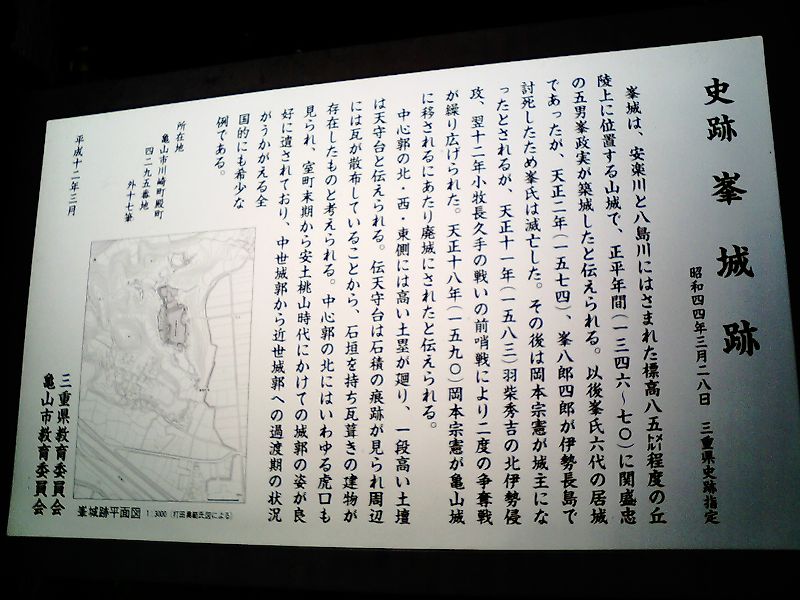 史跡 峯城跡
昭和四四年三月二八日 三重県史跡指定
峯城は、安楽川と八島川にはさまれた標高八五㍍程度の丘
陵上に位置する山城で、正平年間（一三四六～七〇）に関盛忠
の五男峯政実が築城したと伝えられる。以後峯氏六代の居城
であったが、天正二年（一五七四）、峯八郎四郎が伊勢長島で
討死したため峯氏は滅亡した。その後は岡本宗憲が城主にな
ったとされるが、天正十一年（一五八三）羽柴秀吉の北伊勢侵
攻、翌十二年小牧長久手の戦いの前哨戦により二度の争奪戦
が繰り広げられた。天正十八年（一五九〇）岡本宗憲が亀山城
に移されるにあたり廃城にされたと伝えられる。
中心郭の北・西・東側には高い土塁が廻り、一段高い土壇
は天守台と伝えられる。伝天守台は石積の痕跡が見られ周辺
には瓦が散布していることから、石垣を持ち瓦葺きの建物が
存在したものと考えられる。中心郭の北にはいわゆる虎口も
見られ、室町末期から安土桃山時代にかけての城郭の姿が良
好に遺されており、中世城郭から近世城郭への過渡期の状況
がうかがえる全
国的にも希少な
例である。
所在地
亀山市川崎町殿町
四二九五番地
外十七筆
平成十二年三月
三重県教育委員会
亀山市教育委員会
峯城跡平面図 1:3000（村田昇範氏図による）